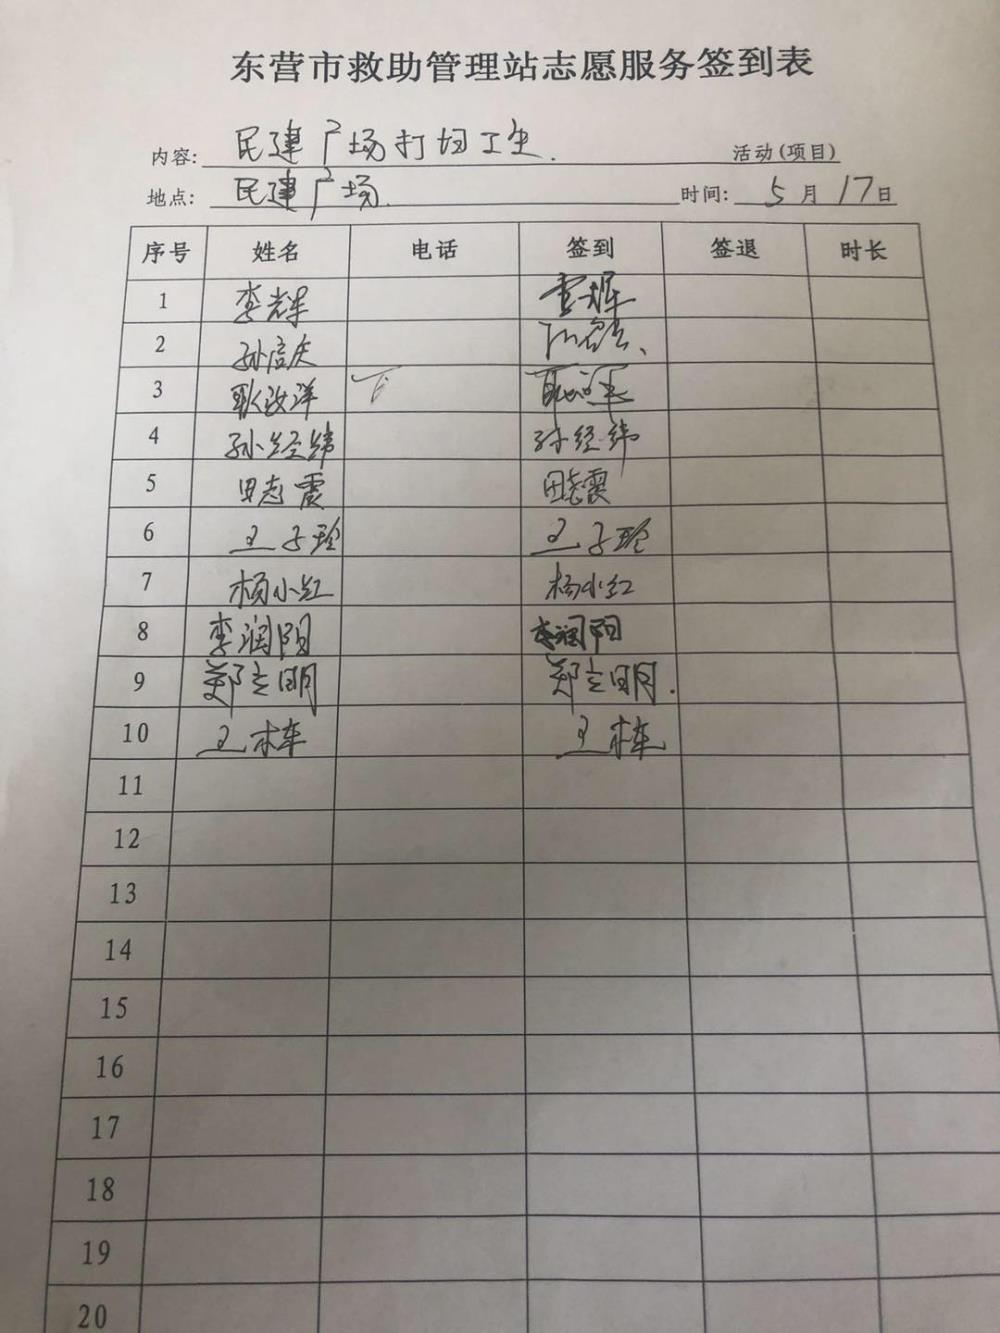 东营市救助管理站志愿服务签到表
内容: 民建广场打扫卫生. 活动(项目)
地点: 民建广场. 时间: 5月17日
序号 姓名 电话 签到 签退 时长
1 李光辉
2 孙信庆
3 耿改洋
4 孙经纬 孙经纬
5 田志震 田志震
6 王子玲 王子玲
7 杨小红 杨小红
8 李润阳 李润阳
9 郑立明 郑立明.
10 王栋 王栋
11
12
13
14
15
16
17
18
19
20